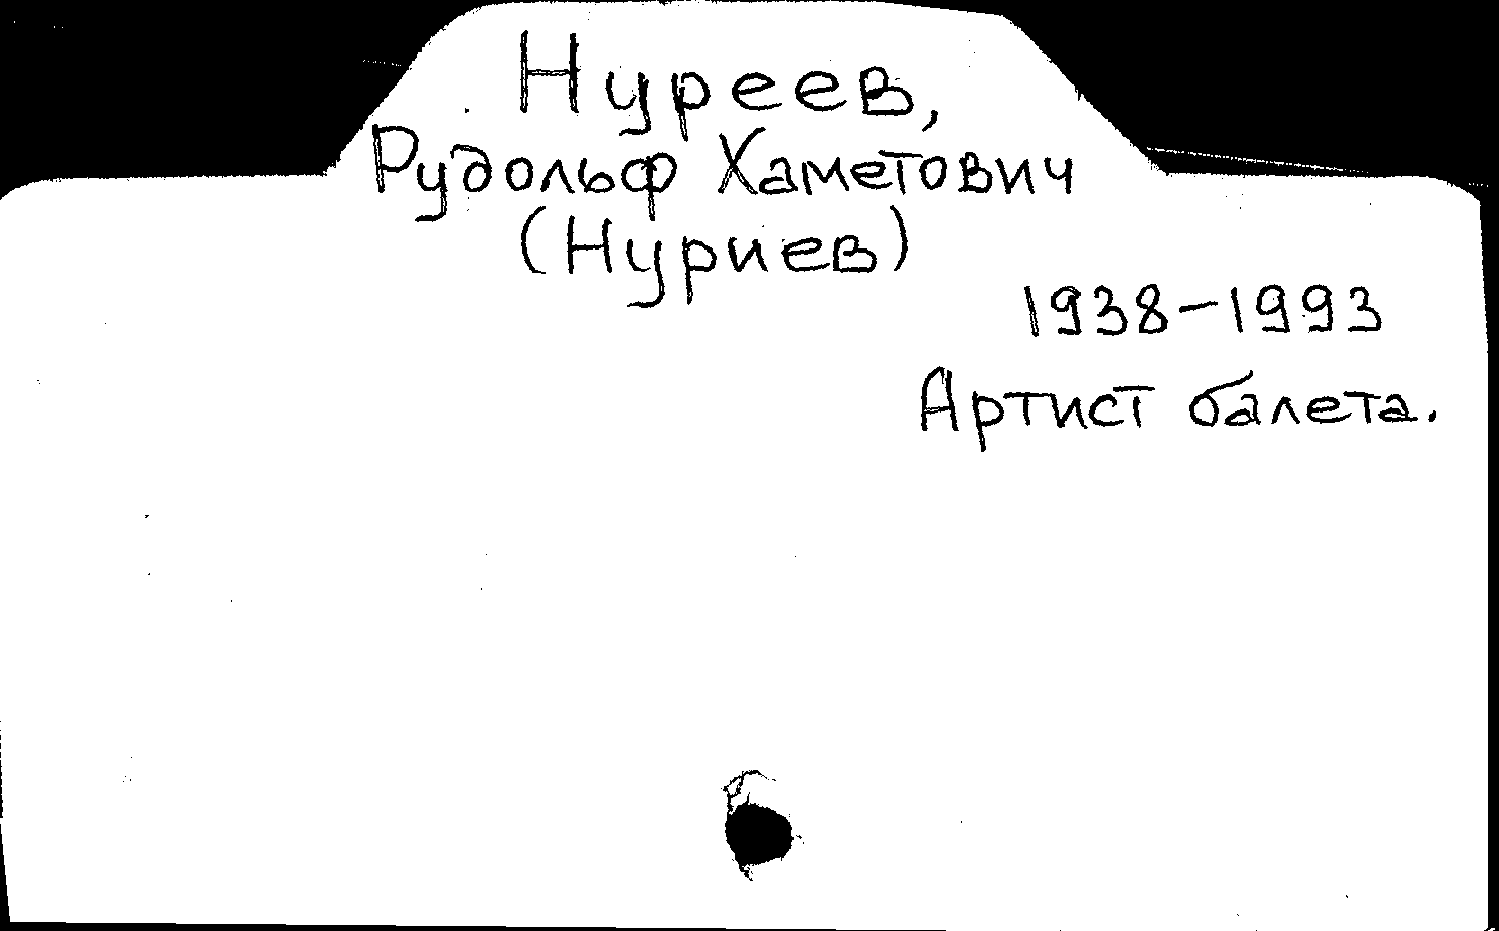 Нуреев,
Рудольф Хаметович
(Нуриев)
1938–1993
Артист балета.